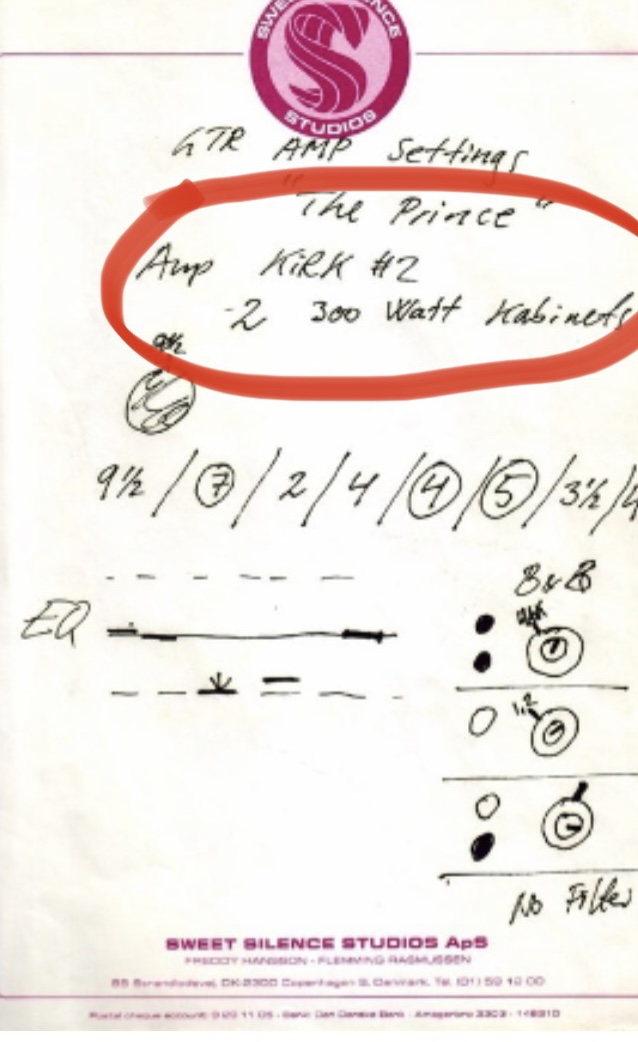 SWEET SILENCE
STUDIOS
GTR AMP Settings
"The Prince"
Amp KiRK #2
-2 300 Watt Kabinets
9½
9½ / 7 / 2 / 4 / 4 / 5 / 3½ / 4
B&B
EQ
1,2
No Filter
SWEET SILENCE STUDIOS ApS
FREDDY HANSSON - FLEMMING RASMUSSEN
DK-2300 Copenhagen S, Denmark, Tel. (01) 59 12 00
Postal cheque account: 9 29 11 05 - Bank: Den Danske Bank - Amagerbro 3303 - 148910